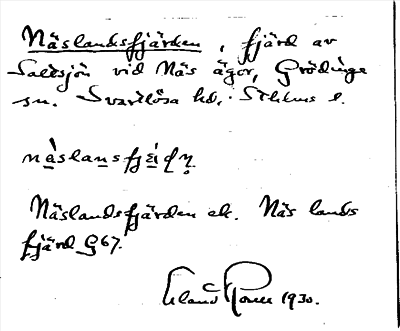 Näslandsfjärden, fjärd av
Saltsjön vid Näs ägor, Grödinge
sn. Svartlösa hd. Sthlms l.
Näslandsfjärden ek. Näs lands
fjärd G67.
1930.